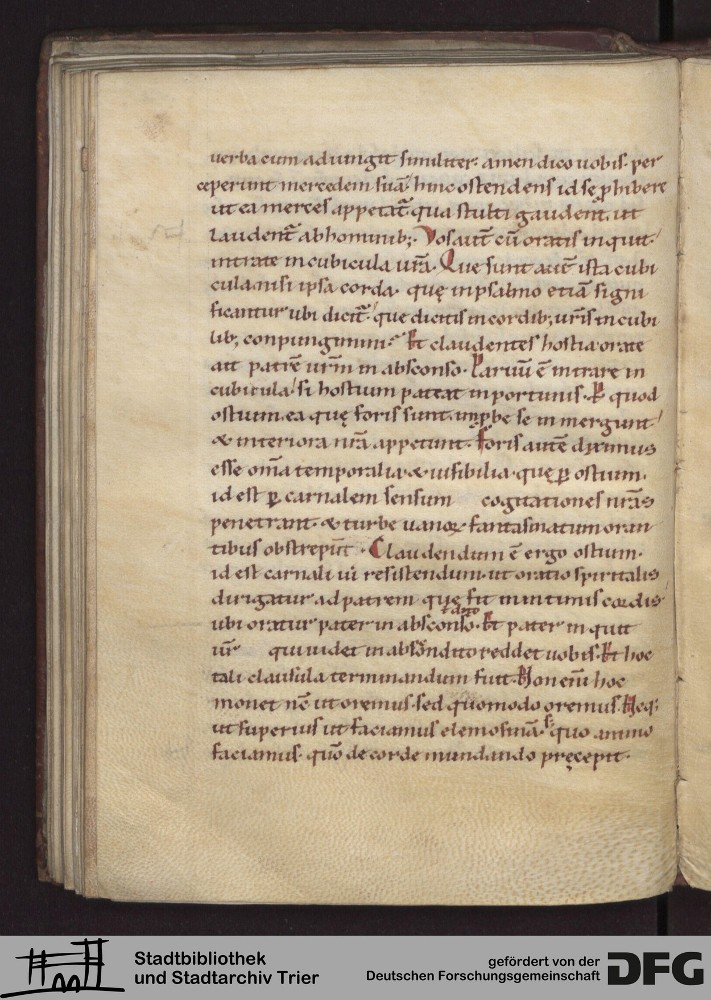 uerba cum adiungit similiter. amen dico uobis. per
ceperunt mercedem suā. hinc ostendens id se ꝓhibere
ut ea merces appetat᷑ qua stulti gaudent. ut
laudent᷑ ab hominib;. Vos aut̄ cū oratis inquit.
intrate in cubicula ur̄a. Que sunt aut̄ ista cubi
cula nisi ipsa corda. quę in psalmo etiā signi
ficantur ubi dicit᷑. que dicitis in cordib; ur̄is in cubi
lib; conpungimini. Et claudentes hostia orate
ait patrē ur̄m in absconso. Paruū ē intrare in
cubicula. si hostium pateat inportunis. ꝑ quod
ostium. ea quę foris sunt. inꝓbe se inmergunt.
& interiora nr̄a appetunt. Foris autē diximus
esse om̄a temporalia & uisibilia. quę ꝑ ostium.
id est ꝑ carnalem sensum cogitationes nr̄as
penetrant. & turbe uanoꝝ fantasmatum oran
tibus obstrepūt. Claudendum ē ergo ostium.
id est carnali ui resistendum. ut oratio spiritalis
dirigatur ad patrem quę fit in intimis cordis.
ubi oratur pater in absconso. Et pater inquit
qui uidet in abscondito reddet uobis. Et hoc
tali clausula terminandum fuit. Non enī hoc
monet nc̄ ut oremus. sed quomodo oremus. Neq;
ut superius ut faciamus elemosinā. s; quo animo
faciamus. quō de corde mundando pręcepit.
Stadtbibliothek
und Stadtarchiv Trier
gefördert von der
Deutschen Forschungsgemeinschaft
DFG